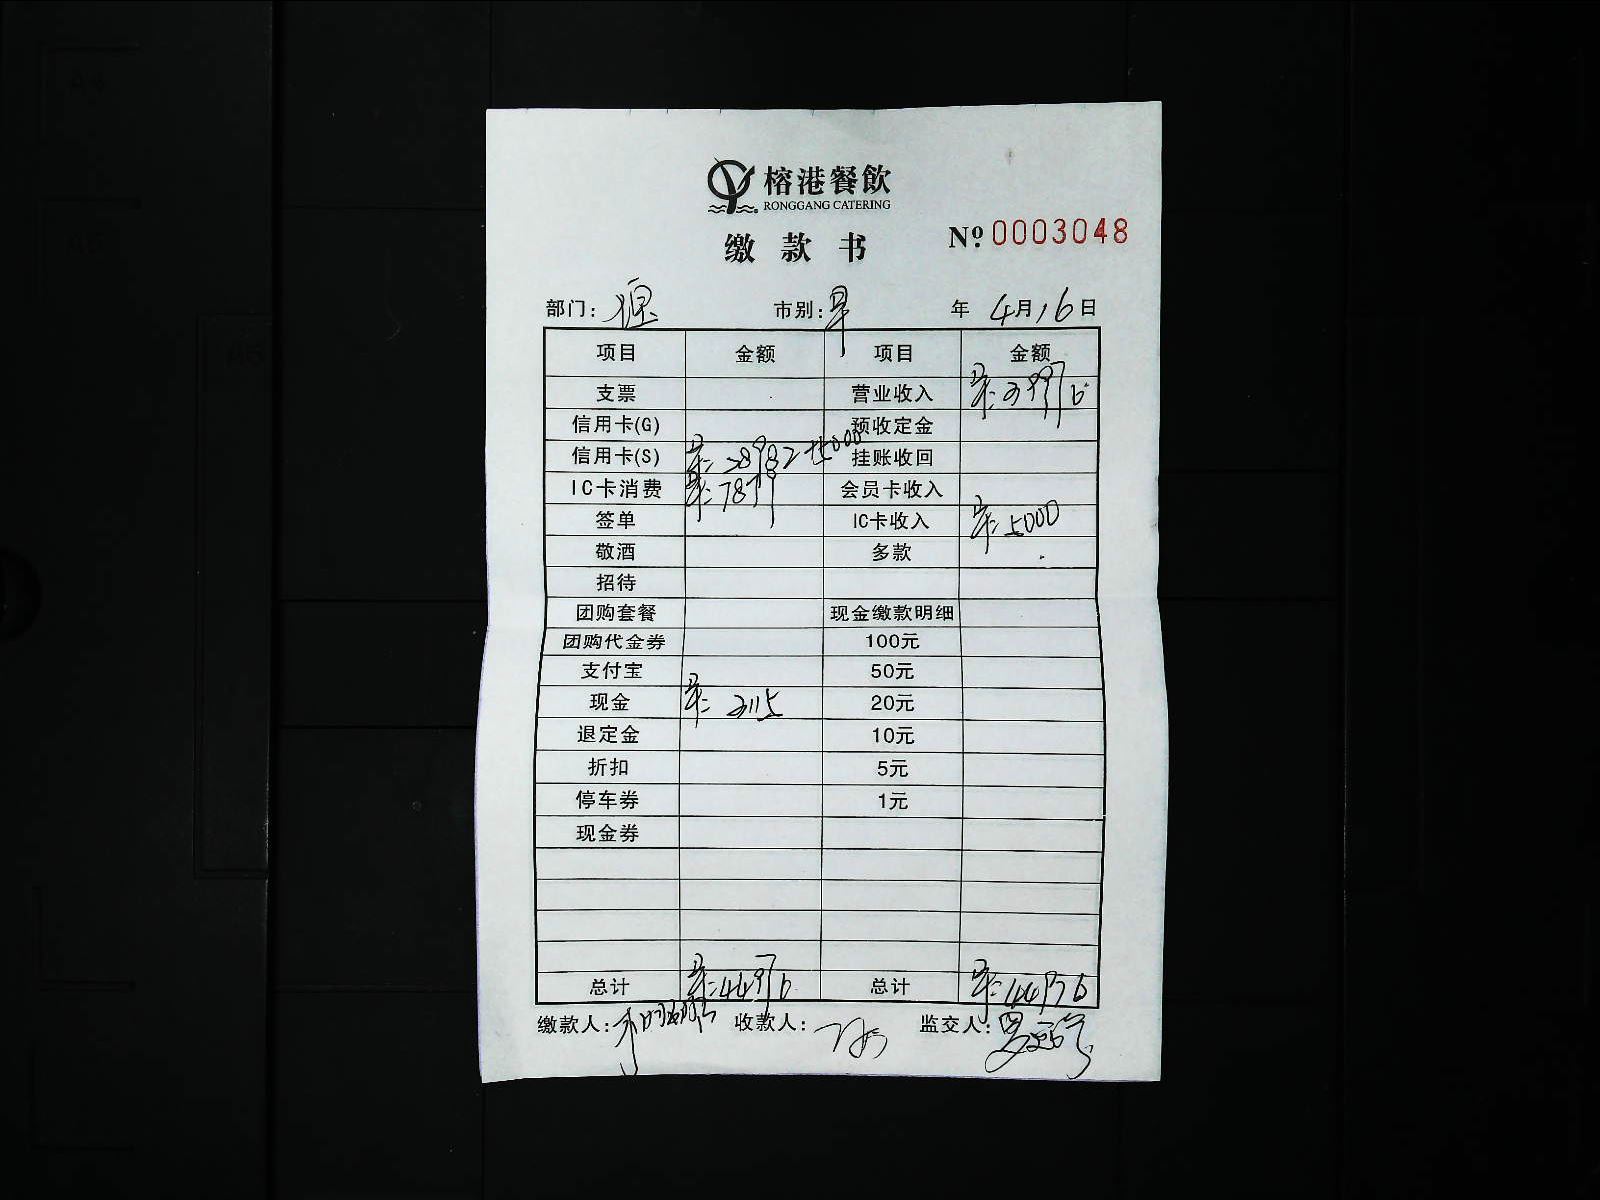 榕港餐飲
RONGGANG CATERING
缴款书
Nº 0003048
部门: 市别:早 年 4月16日
项目 金额 项目 金额
支票 营业收入 早:39976
信用卡(G) 预收定金
信用卡(S) 早:28982+5000 挂账收回
IC卡消费 早:7879 会员卡收入
签单 IC卡收入 早:5000
敬酒 多款
招待
团购套餐 现金缴款明细
团购代金券 100元
支付宝 50元
现金 早:3115 20元
退定金 10元
折扣 5元
停车券 1元
现金券
总计 早:44976 总计 早:44976
缴款人: 收款人: 监交人: